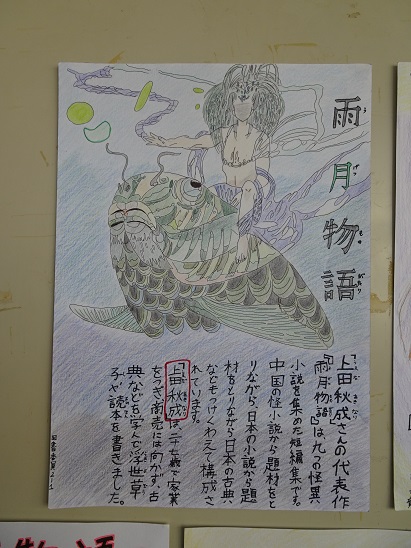 雨月物語
上田秋成さんの代表作
『雨月物語』は、九の怪異
小説を集めた短編集です。
中国の怪小説から題材をと
りながら、日本の小説から題
材をとりながら日本の古典
などもつけくわえて構成さ
れています。
「上田秋成」は、二十七歳で家業
をつぎ商売には向かず、古
典などを学んで浮世草
子や読本を書きました。
図書委員2-1